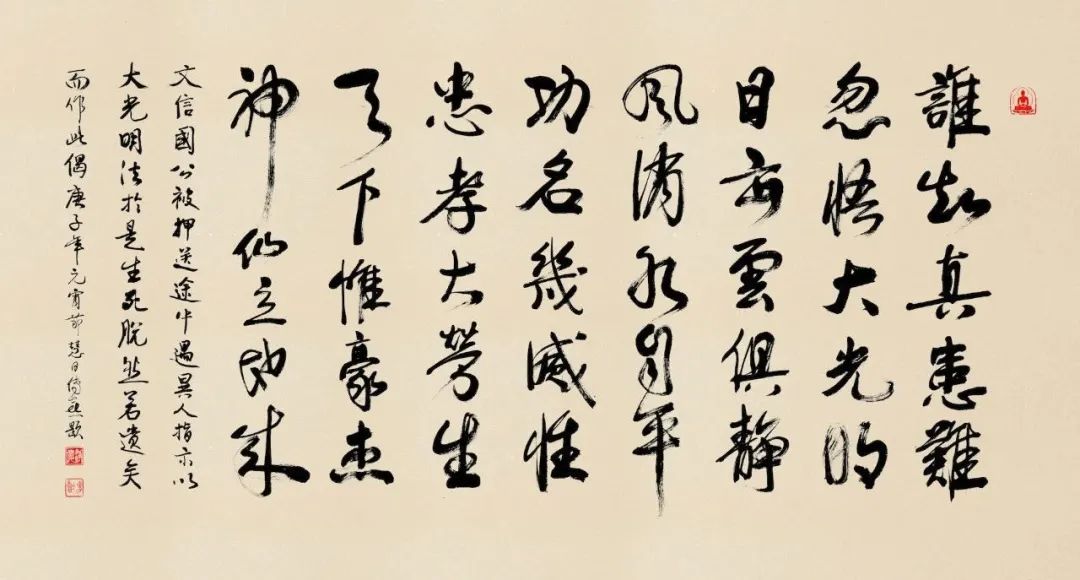 誰知真患難
忽悟大光明
日出雲俱靜
風消水自平
功名幾滅性
忠孝大勞生
天下惟豪杰
神仙立地成
文信國公被押送途中遇異人指示以
大光明法於是生死脫然若遺矣
而作此偈庚子年元宵節慧日題